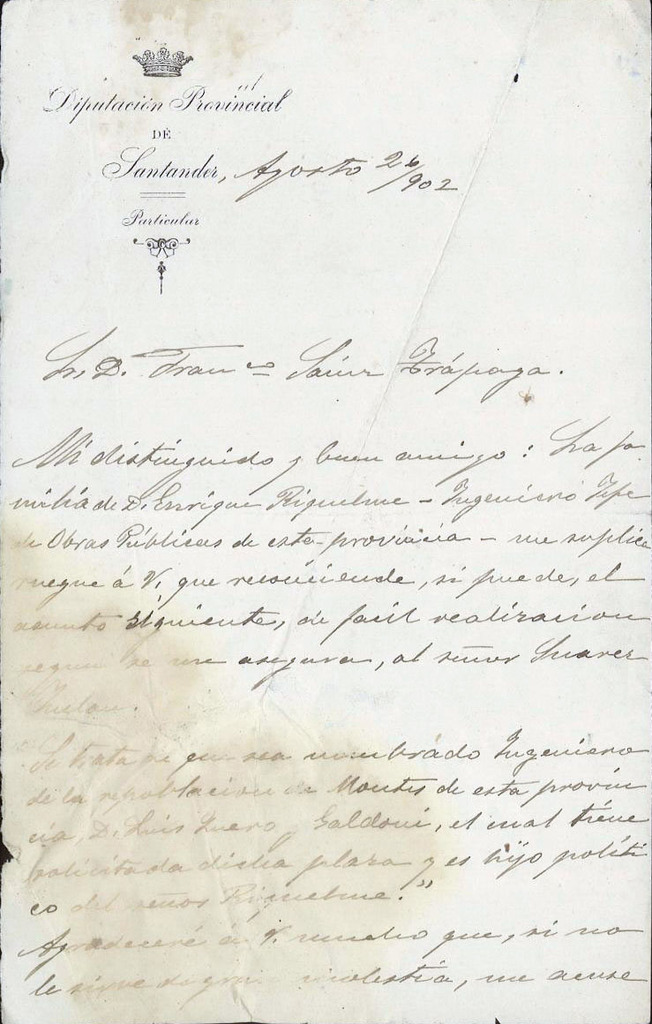 Diputación Provincial
DE
Santander, Agosto 26/902
Particular
Sr. D. Franco Sáinz Trápaga.
Mi distinguido y buen amigo: La fa
milia de D. Enrique Riquelme - Ingeniero Jefe
de Obras Públicas de esta provincia - me suplica
ruegue á V. que recomiende, si puede, el
asunto siguiente, de facil realizacion
segun se me asegura, al señor Suarez
Inclan.
Se trata de que sea nombrado Ingeniero
de la repoblacion de Montes de esta provin
cia, D. Luis y Galdoni, el cual tiene
solicitada dicha plaza y es hijo políti
co del señor Riquelme."
Agradeceré á V. mucho que, si no
le sirve de gran molestia, me acuse